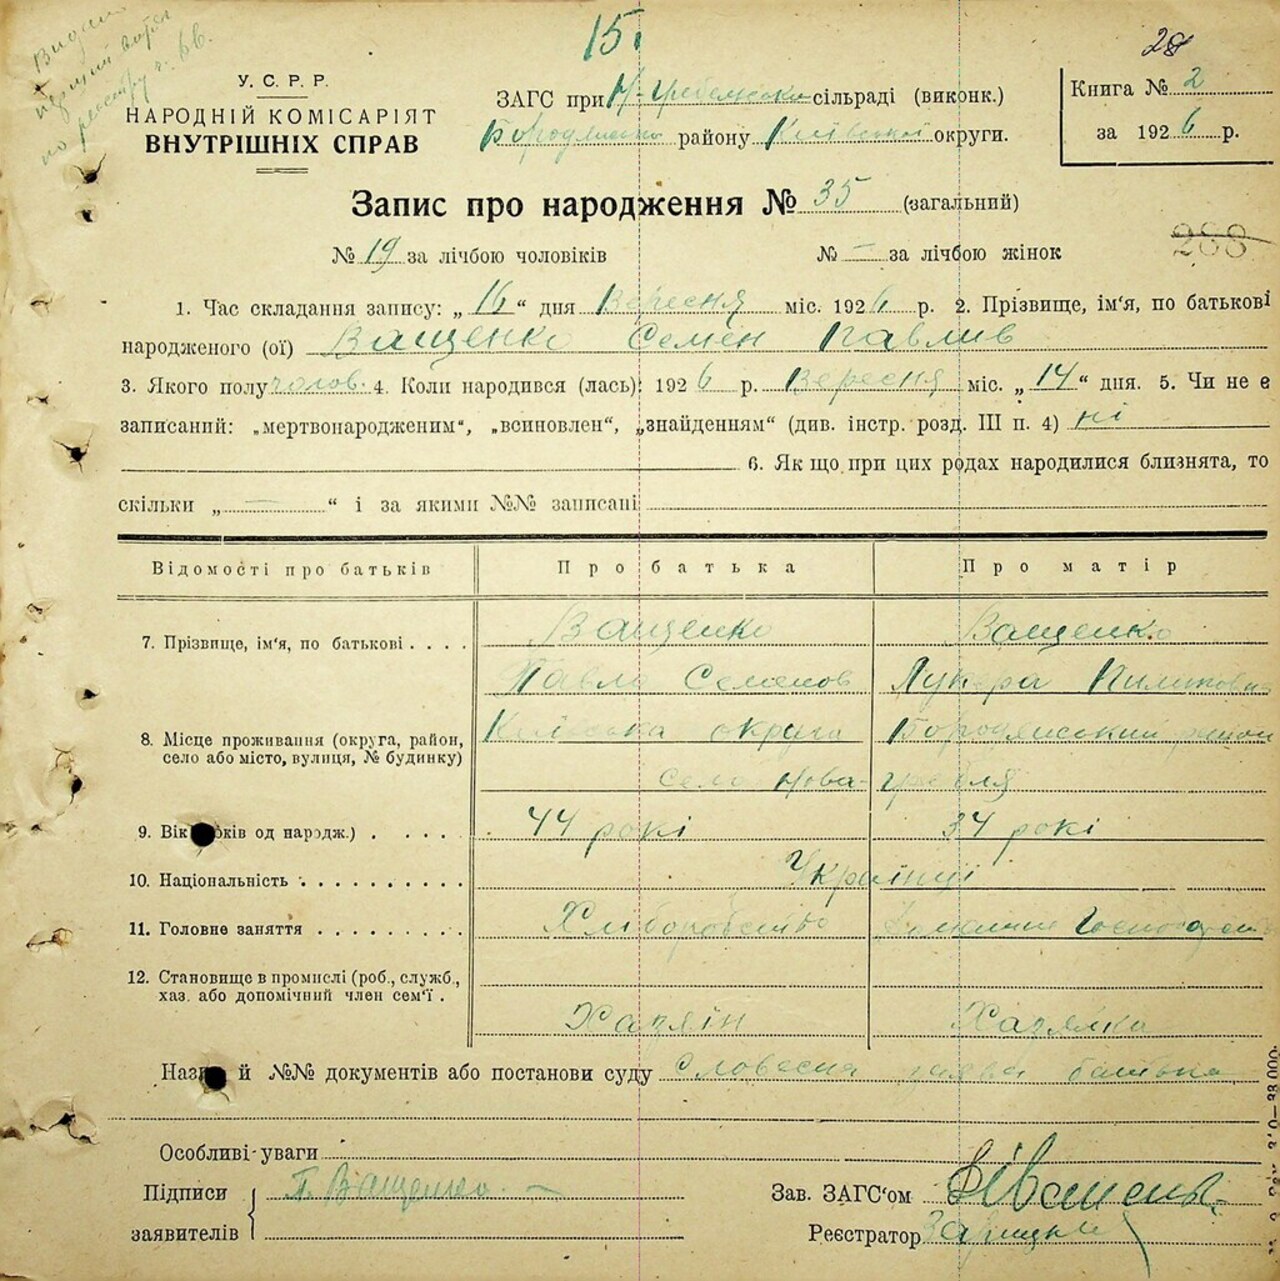 15.
28
Видан
У. С. Р. Р.
НАРОДНІЙ КОМІСАРІЯТ
ВНУТРІШНІХ СПРАВ
ЗАГС при Н-Гребельско сільраді (виконк.)
Бородянско району Київської округи.
Книга № 2
за 1926 р.
Запис про народження № 35 (загальний)
№ 19 за лічбою чоловіків № — за лічбою жінок
288
1. Час складання запису: „16“ дня Вересня міс. 1926 р. 2. Прізвище, ім'я, по батькові
народженого (ої) Ващенко Семен Павлив
3. Якого полу чолов. 4. Коли народився (лась): 1926 р. Вересня міс. „14“ дня. 5. Чи не є
записаний: „мертвонародженим“, „всиновлен“, „знайденням“ (див. інстр. розд. III п. 4) ні
6. Як що при цих родах народилися близнята, то
скільки „—“ і за якими №№ записані
Відомості про батьків Про батька Про матір
7. Прізвище, ім'я, по батькові . . . . Ващенко Ващенко
Павло Семенов Лукера Пилиповна
8. Місце проживання (округа, район, село або місто, вулиця, № будинку) Київська округа Бородянський район
село Нова-гребля
9. Вік років од народж.) . . . . 44 рокі 34 рокі
10. Національність . . . . . . . . . . Українці
11. Головне заняття . . . . . . . . . Хлиборобство Домашне Господарство
12. Становище в промислі (роб., служб.,
хаз. або допомічний член сем'ї . Хазяін Хазяйка
Назва й №№ документів або постанови суду Словесна заява батька
Особливі уваги
Підписи
заявителів
П. Ващенко —
Зав. ЗАГС'ом
Реєстратор Зарицький